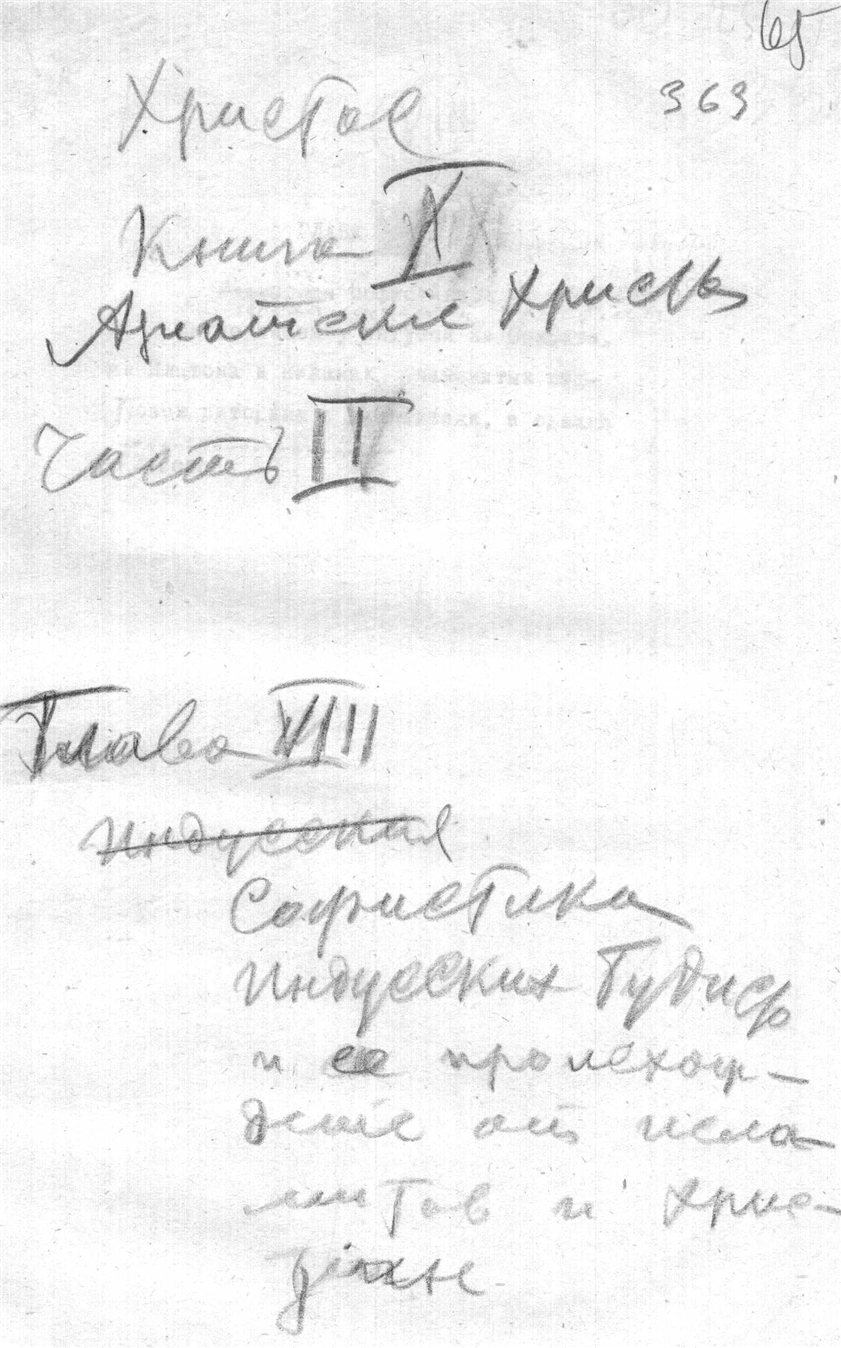 65
363
Христос
Книга X
Азиатскіе Христы
Часть II
Глава VIII
Индусския
Софистика
Индусских Будист
и ее происхож-
деніе от исла-
митов и хрис-
тіан